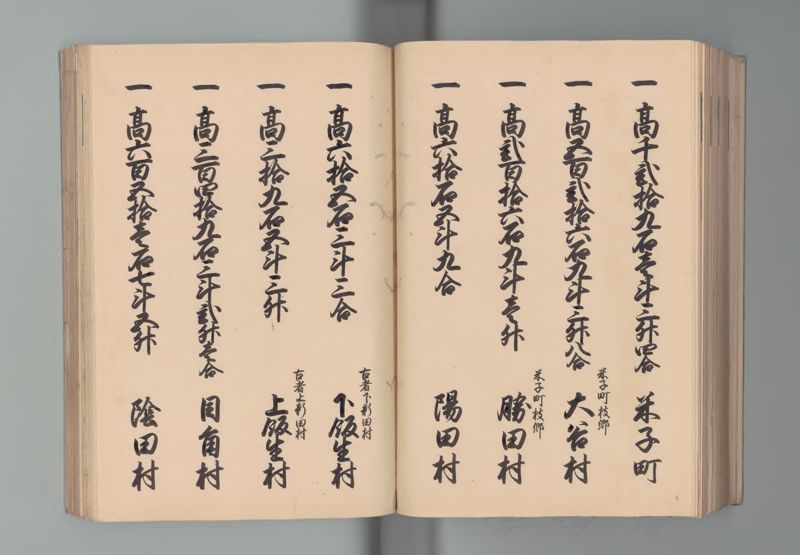 一 高千弐拾九石壱斗三升四合 米子町
米子町枝郷
一 高五百弐拾六石九斗三升八合 大谷村
米子町枝郷
一 高弐百拾六石九斗壱升 勝田村
一 高六拾石五斗九合 陽田村
古者下新田村
一 高六拾五石三斗三合 下飯生村
古者上新田村
一 高三拾九石五斗三升 上飯生村
一 高三百四拾九石三斗弐升壱合 目角村
一 高六百五拾壱石七斗五升 陰田村